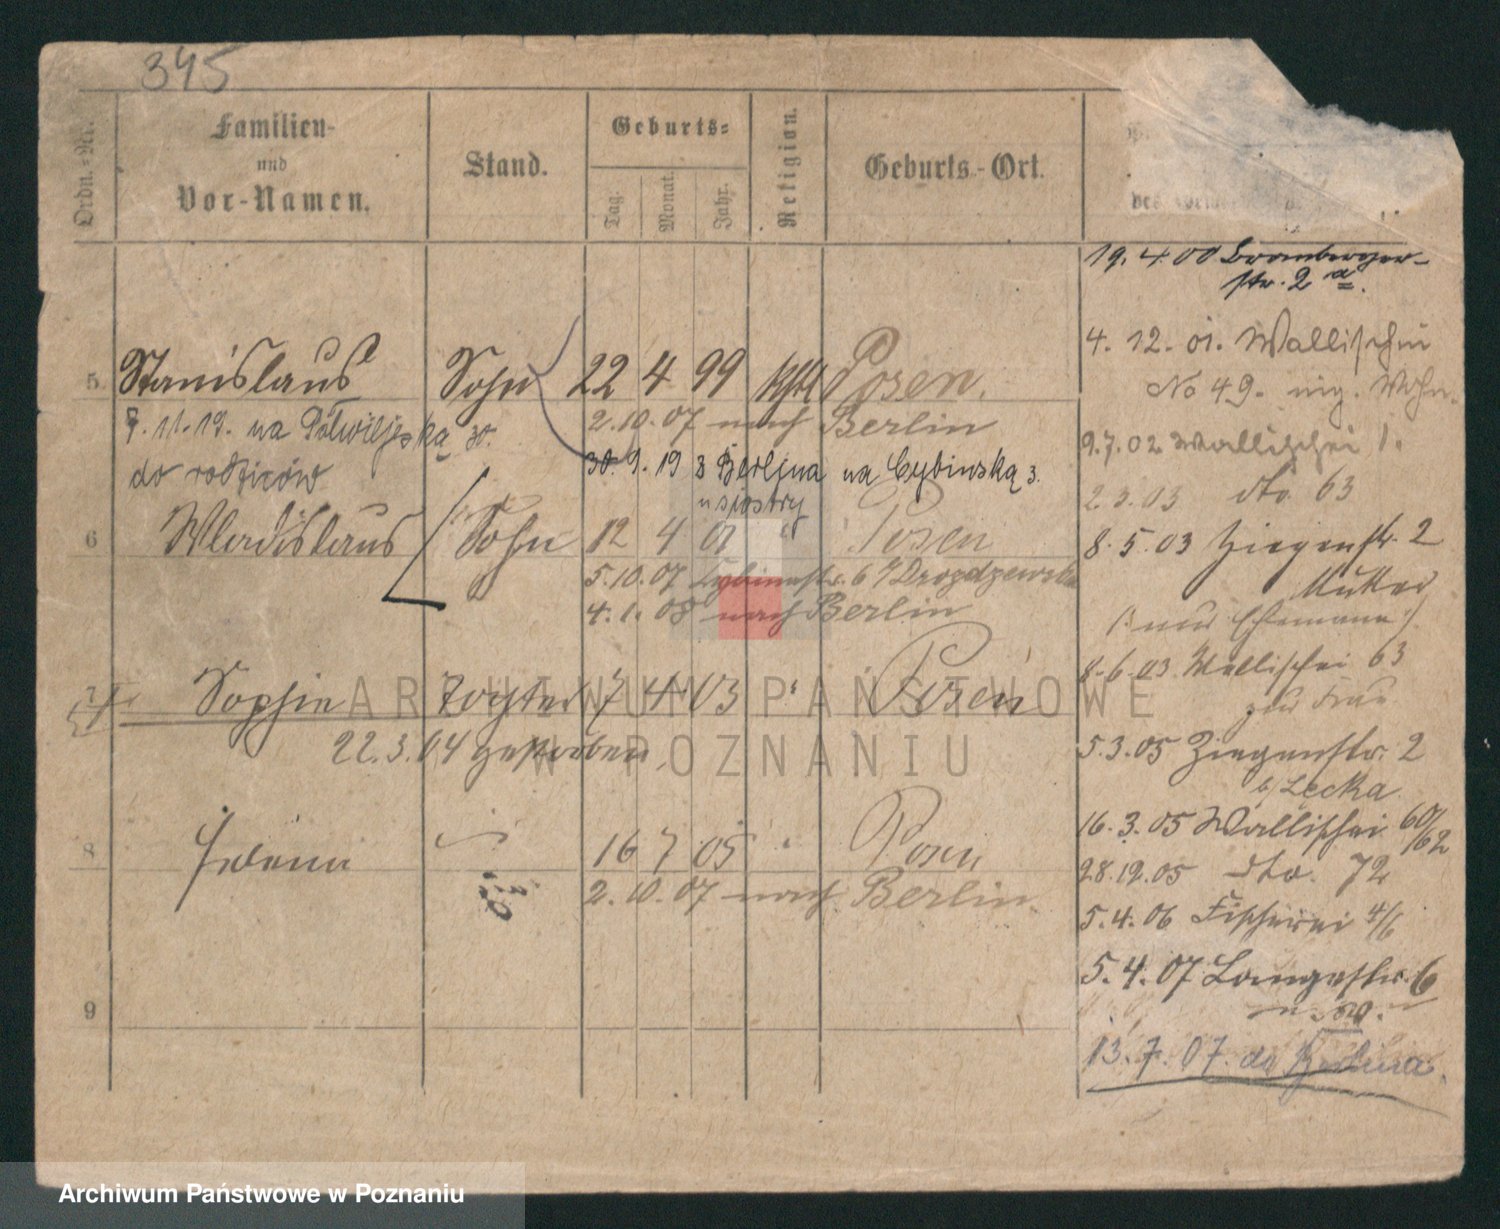 345
Ordn.-Nr.
Familien-
und
Vor-Namen.
Stand.
Geburts-
Tag.
Monat.
Jahr.
Religion.
Geburts-Ort.
des
19. 4. 00 Bromberger-
str. 2 a.
4. 12. 01. Wallischei
No 49. Wohn.
9.7.02 Wallischei 1.
2.3.03 dto 63
8. 5. 03 Ziegenstr. 2
Mutter
(: nur Ehemann :)
8.6.03 Wallischei 63
zur Frau
5.3.05 Ziegenstr. 2
b/ Lecka
16. 3. 05 Wallischei 60/62
28.12.05 dto. 72
5.4.06 Fischerei 4/6
5. 4. 07 Langestr. 6
13. 7. 07. do
5. Stanislaus Sohn 22 4 99 kath Posen.
2.10.07 nach Berlin
7.11.19. na 30.
do rodziców
30. 9. 19 z Berlina na Cybińską 3.
u siostry
6 Wladislaus Sohn 12 4 01 " Posen
5.10.07 Cybinastr. 6 b/ Drozdzewska
4. 1. 08 nach Berlin
7 Sophie Tochter 7 4 03 " Posen
22.3.04 gestorben
8 Helena 16 7 05 " Posen
2. 10. 07 nach Berlin.
9
ARCHIWUM PAŃSTWOWE
W POZNANIU
Archiwum Państwowe w Poznaniu